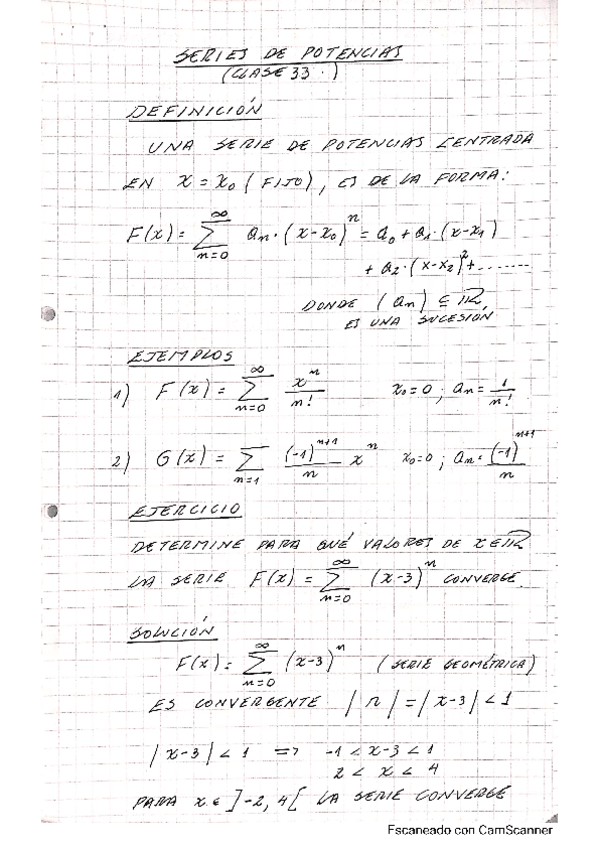 SERIES DE POTENCIAS
(CLASE 33.)
DEFINICIÓN
UNA SERIE DE POTENCIAS CENTRADA
EN x = x₀ (FIJO), ES DE LA FORMA:
F(x) = ∑_{n=0}^{∞} aₙ·(x-x₀)ⁿ = a₀ + a₁·(x-x₁)
+ a₂·(x-x₂)² + .......
DONDE (aₙ) ⊆ ℝ
ES UNA SUCESIÓN
EJEMPLOS
1) F(x) = ∑_{n=0}^{∞} xⁿ/n! x₀=0; aₙ = 1/n!
2) G(x) = ∑_{n=1} (-1)ⁿ⁺¹/n xⁿ x₀=0; aₙ = (-1)ⁿ⁺¹/n
EJERCICIO
DETERMINE PARA QUÉ VALORES DE x ∈ ℝ
LA SERIE F(x) = ∑_{n=0}^{∞} (x-3)ⁿ CONVERGE.
SOLUCIÓN
F(x) = ∑_{n=0}^{∞} (x-3)ⁿ (SERIE GEOMÉTRICA)
ES CONVERGENTE |r| = |x-3| < 1
|x-3| < 1 => -1 < x-3 < 1
2 < x < 4
PARA x ∈ ]-2, 4[ LA SERIE CONVERGE
Escaneado con CamScanner